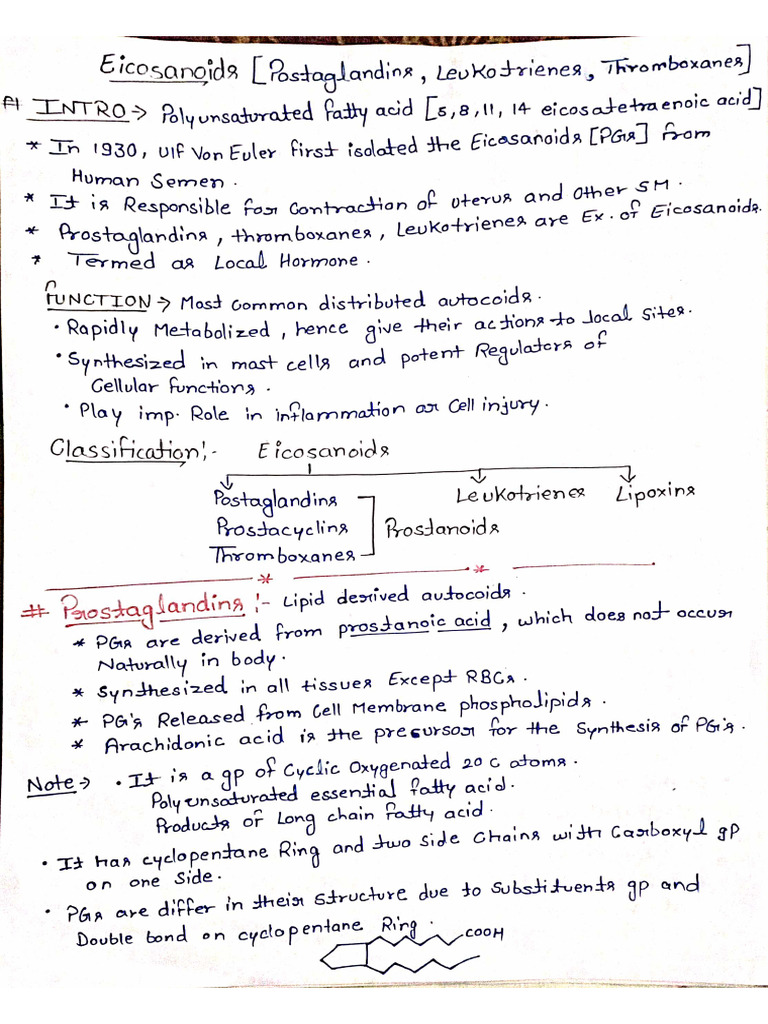 Eicosanoids [Postaglandins, Leukotrienes, Thromboxanes]
INTRO → Polyunsaturated fatty acid [5,8,11, 14 eicosatetraenoic acid]
* In 1930, Ulf Von Euler first isolated the Eicosanoids [PGs] from
Human Semen.
* It is Responsible for Contraction of uterus and Other SM.
* Prostaglandins, thromboxanes, Leukotrienes are Ex. of Eicosanoids.
* Termed as Local Hormone.
FUNCTION → Most Common distributed autocoids.
• Rapidly Metabolized, hence give their actions to local sites.
• Synthesized in mast cells and potent Regulators of
Cellular functions.
• Play imp. Role in inflammation or Cell injury.
Classification:- Eicosanoids
Postaglandins Leukotrienes Lipoxins
Prostacyclins Prostanoids
Thromboxanes
# Prostaglandins :- Lipid derived autocoids.
* PGs are derived from prostanoic acid, which does not occur
Naturally in body.
* Synthesized in all tissues Except RBCs.
* PG's Released from Cell Membrane phospholipids.
* Arachidonic acid is the precursor for the synthesis of PG's.
Note → • It is a gp of Cyclic Oxygenated 20 C atoms.
Polyunsaturated essential fatty acid.
Products of Long chain fatty acid.
• It has cyclopentane Ring and two side Chains with Carboxyl gp
on one Side.
• PGs are differ in their structure due to Substituents gp and
Double bond on cyclopentane Ring.
COOH